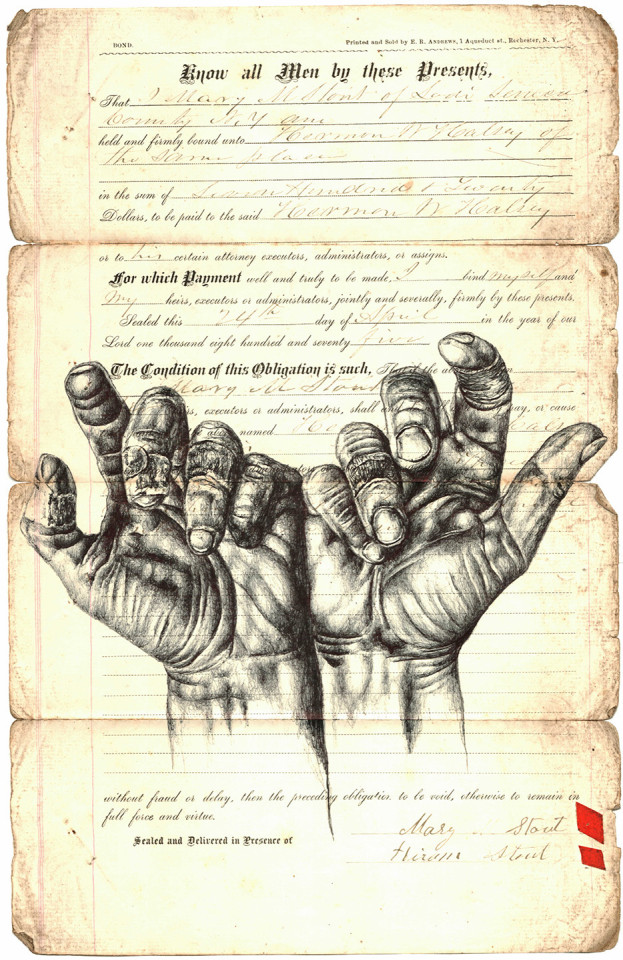 BOND.
Printed and Sold by E. R. ANDREWS, 1 Aqueduct st., Rochester, N. Y.
Know all Men by these Presents,
That I Mary M Stout of Lodi Seneca
County N.Y am
held and firmly bound unto Hermon W Halsey of
the same place
in the sum of Seven Hundred & Twenty
Dollars, to be paid to the said Hermon W Halsey
or to his certain attorney executors, administrators, or assigns.
For which Payment well and truly to be made, I bind myself and
My heirs, executors or administrators, jointly and severally, firmly by these presents.
Sealed this 24th day of April in the year of our
Lord one thousand eight hundred and seventy five
The Condition of this Obligation is such, That if the
Mary M Stout
executors or administrators, shall pay, or cause
named
without fraud or delay, then the preceding obligation to be void, otherwise to remain in
full force and virtue.
Sealed and Delivered in Presence of
Mary Stout
Hiram Stout